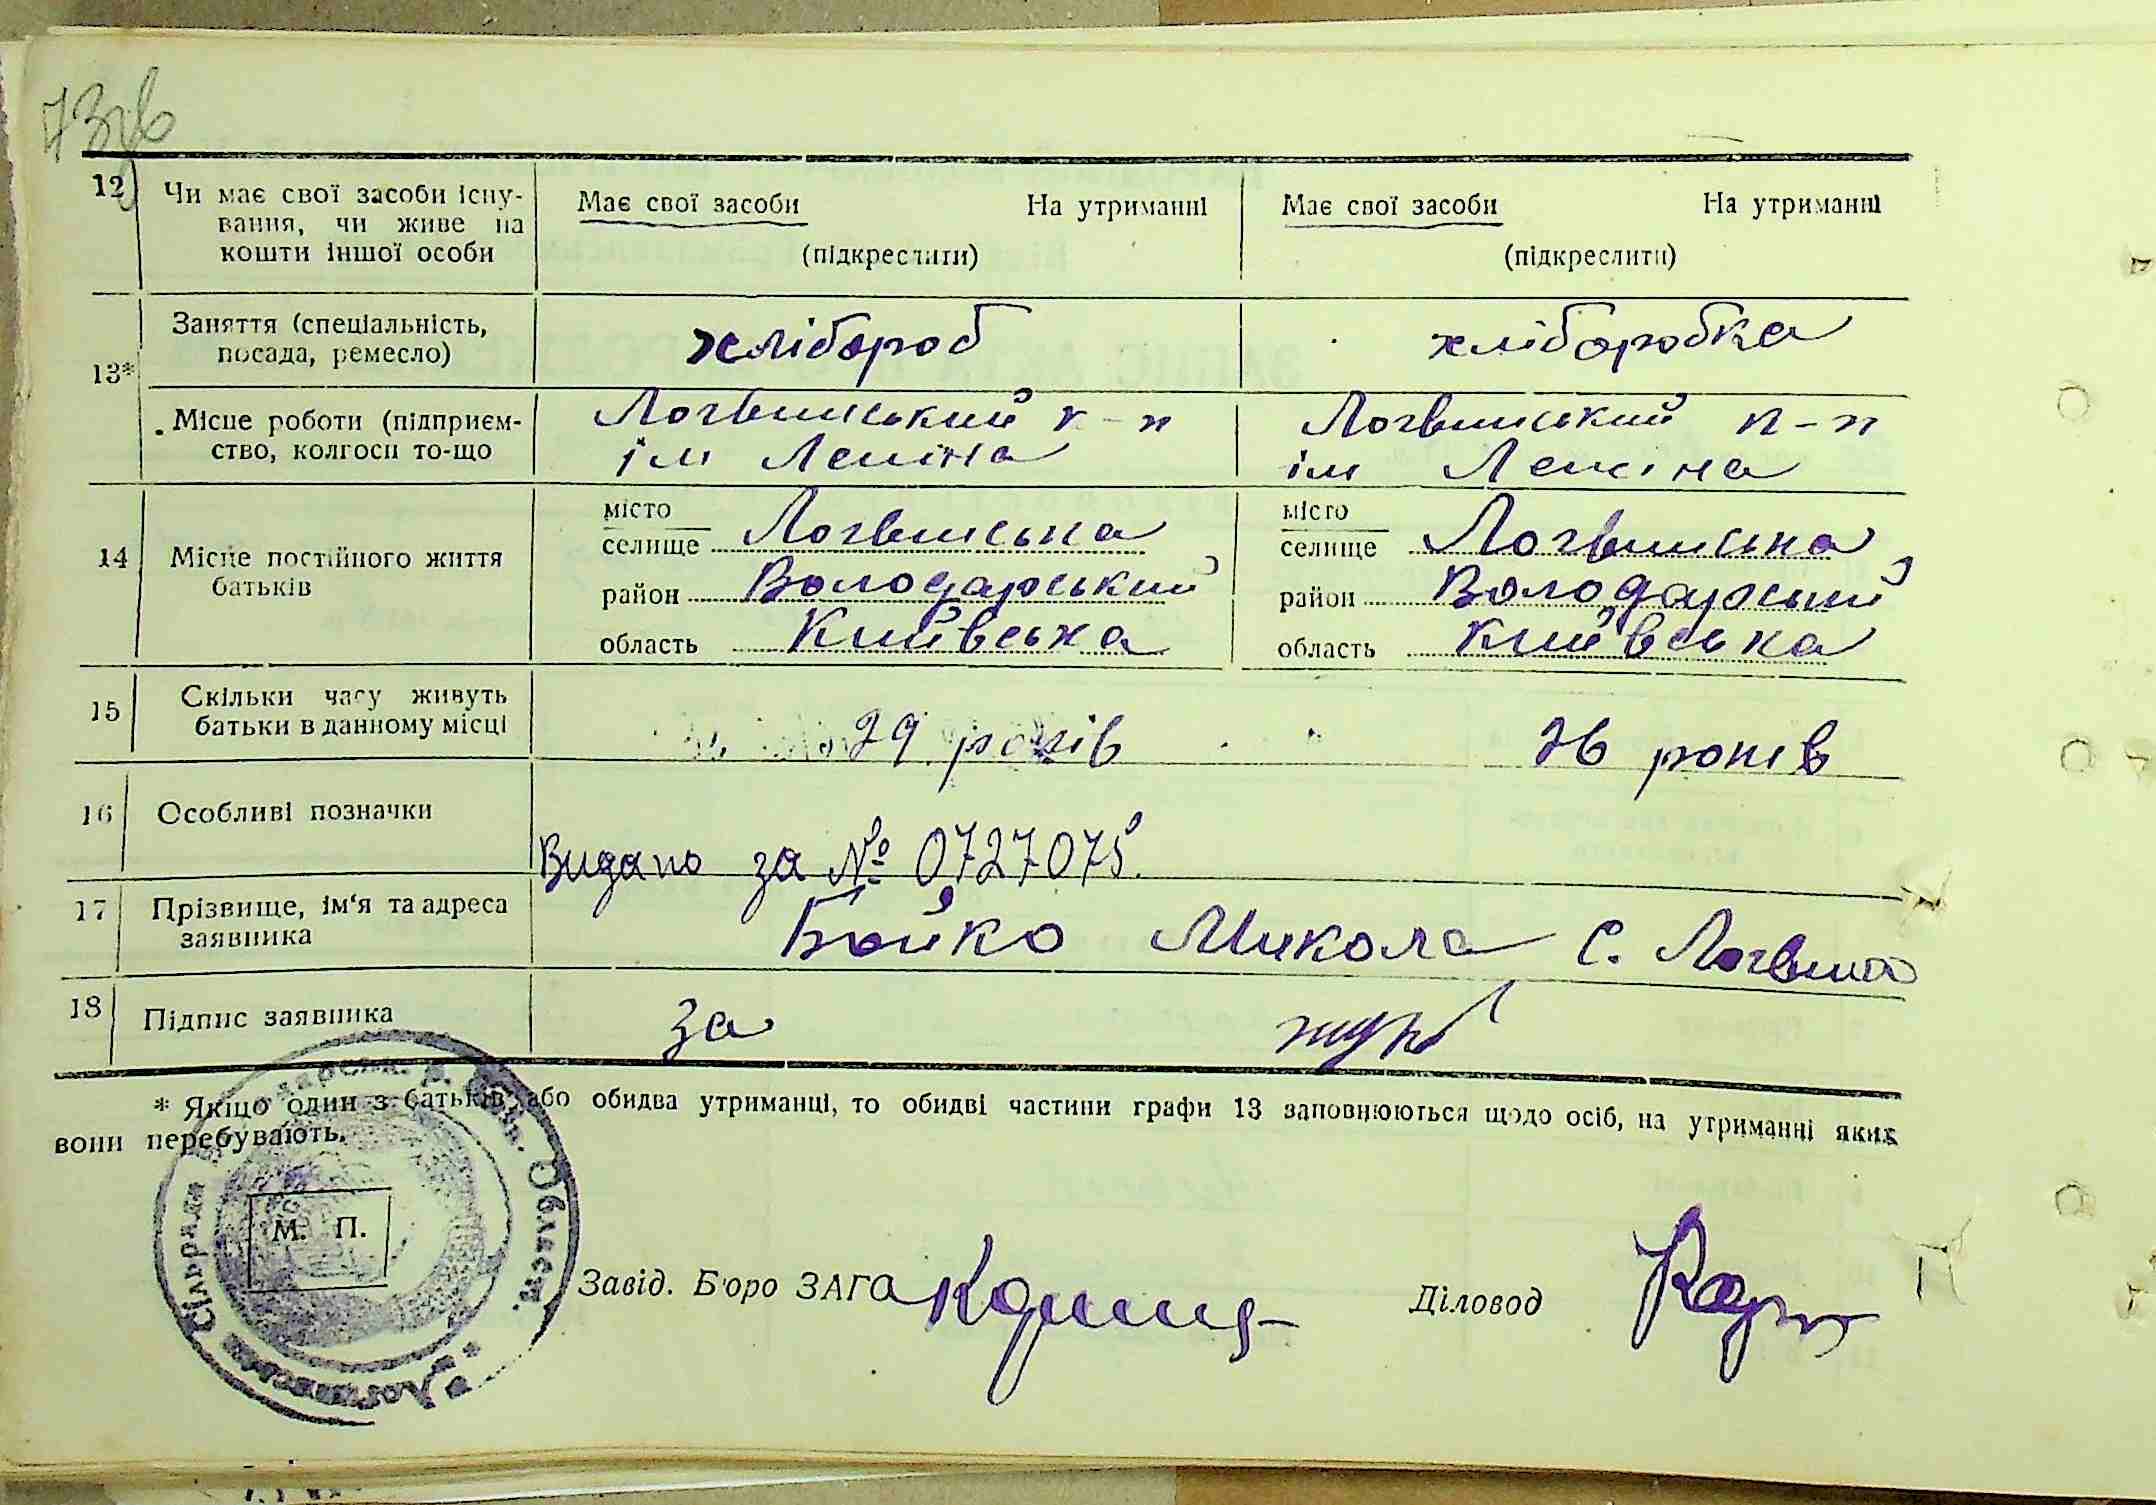 73зв
12 Чи має свої засоби існу-
вання, чи живе на
кошти іншої особи
Має свої засоби На утриманні
(підкреслити)
Має свої засоби На утриманні
(підкреслити)
13*
Заняття (спеціальність,
посада, ремесло)
хлібороб
хліборобка
Місце роботи (підприєм-
ство, колгосп то-що
Логвинський к-п
ім Леніна
Логвинський к-п
ім Леніна
14 Місце постійного життя
батьків
місто
селище Логвинська
район Володарський
область Київська
місто
селище Логвинська
район Володарський
область Київська
15 Скільки часу живуть
батьки в данному місці
29 років
26 років
16 Особливі позначки
Видано за № 0727075.
17 Прізвище, ім'я та адреса
заявника
Бойко Микола С. Логвина
18 Підпис заявника
за
* Якщо один з батьків або обидва утриманці, то обидві частини графи 13 заповнюються щодо осіб, на утриманні яких
вони перебувають.
М. П.
Сільрада
Област.
Завід. Бюро ЗАГС
Діловод